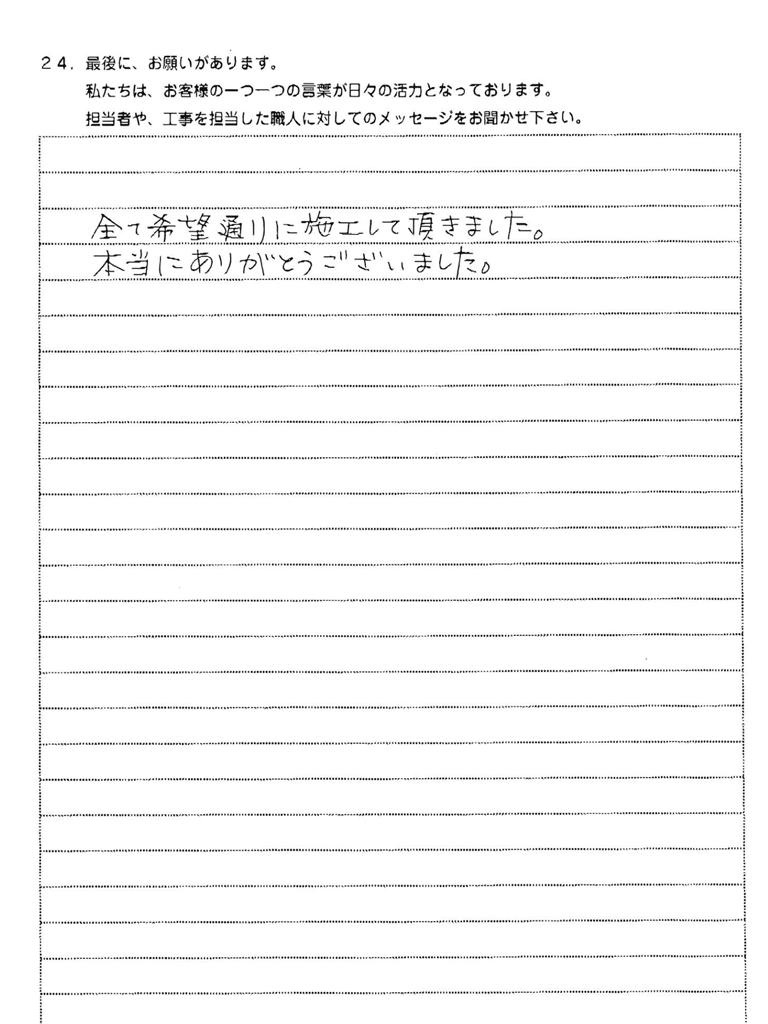 24. 最後に、お願いがあります。
私たちは、お客様の一つ一つの言葉が日々の活力となっております。
担当者や、工事を担当した職人に対してのメッセージをお聞かせ下さい。
全て希望通りに施工して頂きました。
本当にありがとうございました。